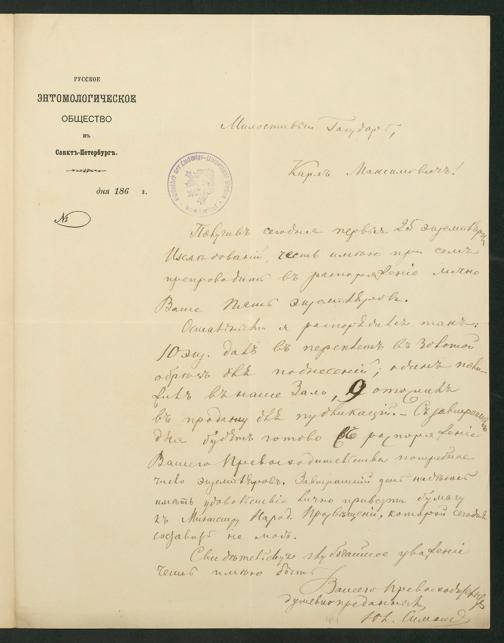 РУССКОЕ
ЭНТОМОЛОГИЧЕСКОЕ
ОБЩЕСТВО
въ
Санктъ-Петербургѣ.
дня 186 г.
№
Милостивый Государь,
Карлъ Максимовичъ!
Получивъ сегодня первыя 25 экземпляр.
Изслѣдованій, честь имѣю при семъ
препроводить въ распоряженіе лично
Ваше пять экземпляровъ.
я распорядился такъ:
10 экз. далъ въ переплетъ
обрѣзъ для поднесеній; одинъ
въ наше Залъ, 9
въ продажу для публикацій. – Съ завтрашн
дня будетъ готово распоряженіе
Вашего Превосходительства потребное
число экземпляровъ. Завтрашній день надѣюсь
имѣть удовольствіе лично привезти бумагу
къ Министру Народ. Просвѣщенія, которой сегодня
составить не могъ.
глубочайшее уваженіе
честь имѣю быть
Вашего Превосходства
душевнопреданный
Юл. Симашко